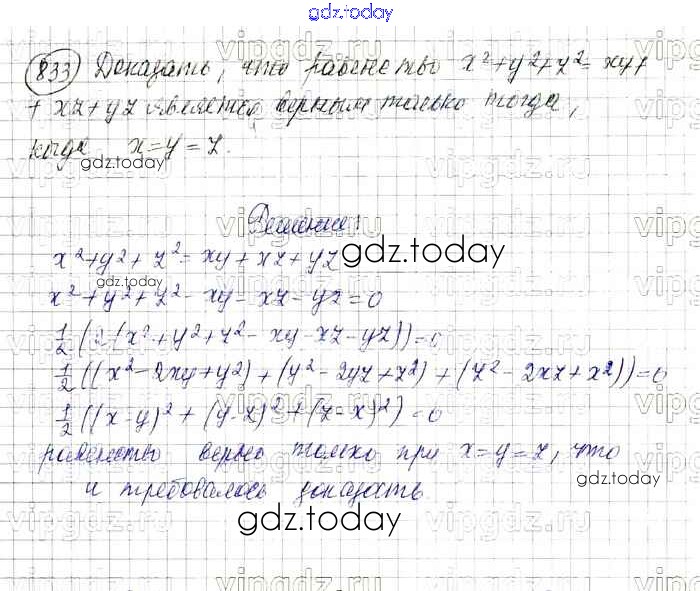 gdz.today
833 Доказать, что равенство x²+y²+z²=xy+
+ xz+yz является верным только тогда,
когда x=y=z.
gdz.today
Решение:
x²+y²+z²=xy+xz+yz
gdz.today
gdz.today
x²+y²+z²-xy-xz-yz=0
½(2(x²+y²+z²-xy-xz-yz))=0
½((x²-2xy+y²)+(y²-2yz+z²)+(z²-2xz+x²))=0
½((x-y)²+(y-z)²+(z-x)²)=0
равенство верно только при x=y=z, что
gdz.today
и требовалось доказать.
gdz.today
vipgdz.ru